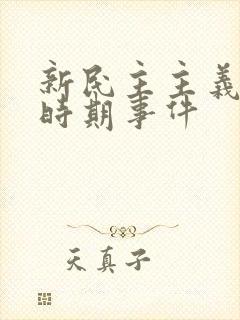 新民主主義
時期事件
天真子